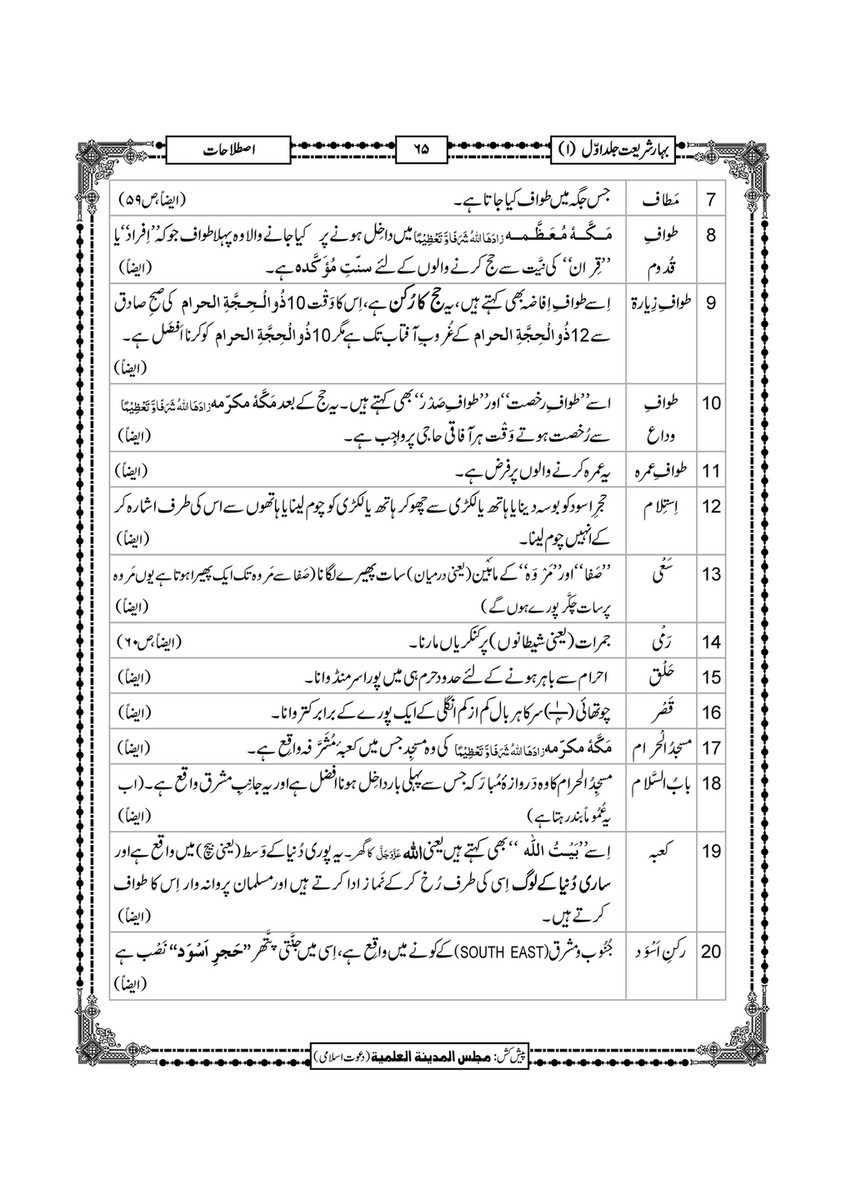 بہارشریعت جلد اوّل (۱)
۶۵
اصطلاحات
7 مَطاف جس جگہ میں طواف کیا جاتا ہے۔ (ایضاً،ص۵۹)
8 طوافِ مَـکَّـۂ مُعَظَّمہ زادَھَااللہُ شَرَفًاوَّتَعْظِیْمًا میں داخِل ہونے پر کیا جانے والا وہ پہلا طواف جو کہ ’’اِفراد‘‘ یا
قُدوم ’’قِران‘‘ کی نیَّت سے حج کرنے والوں کے لئے سنّتِ مُؤَکَّدہ ہے۔ (ایضاً)
9 طوافِ زِیارۃ اِسے طوافِ اِفاضہ بھی کہتے ہیں، یہ حج کا رُکن ہے، اِس کا وَقْت 10 ذُوالْحِجَّۃِ الحرام کی صبحِ صادق
سے 12 ذُوالْحِجَّۃِ الحرام کے غُروبِ آفتاب تک ہے مگر 10 ذُوالْحِجَّۃِ الحرام کو کرنا اَفضَل ہے۔
(ایضاً)
10 طوافِ اسے ’’طوافِ رخصت‘‘ اور ’’طوافِ صَدْر‘‘ بھی کہتے ہیں۔ یہ حج کے بعد مَکَّۂ مکرّمہ زادَھَااللہُ شَرَفًاوَّتَعْظِیْمًا
وداع سے رُخصت ہوتے وَقْت ہر آفاقی حاجی پر واجِب ہے۔ (ایضاً)
11 طوافِ عمرہ یہ عمرہ کرنے والوں پر فرض ہے۔ (ایضاً)
12 اِستِلام حجرِ اسود کو بوسہ دینا یا ہاتھ یا لکڑی سے چھو کر ہاتھ یا لکڑی کو چوم لینا یا ہاتھوں سے اس کی طرف اشارہ کر
کے اُنہیں چوم لینا۔ (ایضاً)
13 سَعْی ’’صَفا‘‘ اور ’’مَرْوَہ‘‘ کے مابَین (یعنی درمیان) سات پھیرے لگانا (صَفا سے مَروہ تک ایک پھیرا ہوتا ہے یوں مَروہ
پر سات چکَّر پورے ہوں گے) (ایضاً)
14 رَمْی جمرات (یعنی شیطانوں) پر کنکریاں مارنا۔ (ایضاً،ص۶۰)
15 حَلْق احرام سے باہر ہونے کے لئے حدودِ حرم ہی میں پورا سر منڈوانا۔ (ایضاً)
16 قَصْر چوتھائی (¼) سر کا ہر بال کم از کم انگلی کے ایک پورے کے برابر کتروانا۔ (ایضاً)
17 مسجدُ الْحَرام مَکَّۂ مکرّمہ زادَھَااللہُ شَرَفًاوَّتَعْظِیْمًا کی وہ مسجِد جس میں کعبۂ مُشَرَّفہ واقِع ہے۔ (ایضاً)
18 بابُ السَّلام مسجِدُ الحرام کا وہ دَروازۂ مُبارَکہ جس سے پہلی بار داخِل ہونا افضل ہے اور یہ جانِبِ مشرِق واقع ہے۔ (اب
یہ عُمُوماً بند رہتا ہے) (ایضاً)
19 کعبہ اِسے ’’بَیْتُ اللہ‘‘ بھی کہتے ہیں یعنی اللہ عَزَّوَجَلَّ کا گھر۔ یہ پوری دُنیا کے وَسط (یعنی بیچ) میں واقِع ہے اور
ساری دُنیا کے لوگ اِسی کی طرف رُخ کر کے نَماز ادا کرتے ہیں اور مسلمان پروانہ وار اِس کا طواف
کرتے ہیں۔ (ایضاً)
20 رکنِ اَسْوَد جُنُوب و مشرِق (SOUTH EAST) کے کونے میں واقِع ہے، اِسی میں جنَّتی پتَّھر ’’حَجرِ اَسْوَد‘‘ نَصْب ہے
(ایضاً)
پیش کش: مجلس المدینة العلمیة (دعوت اسلامی)